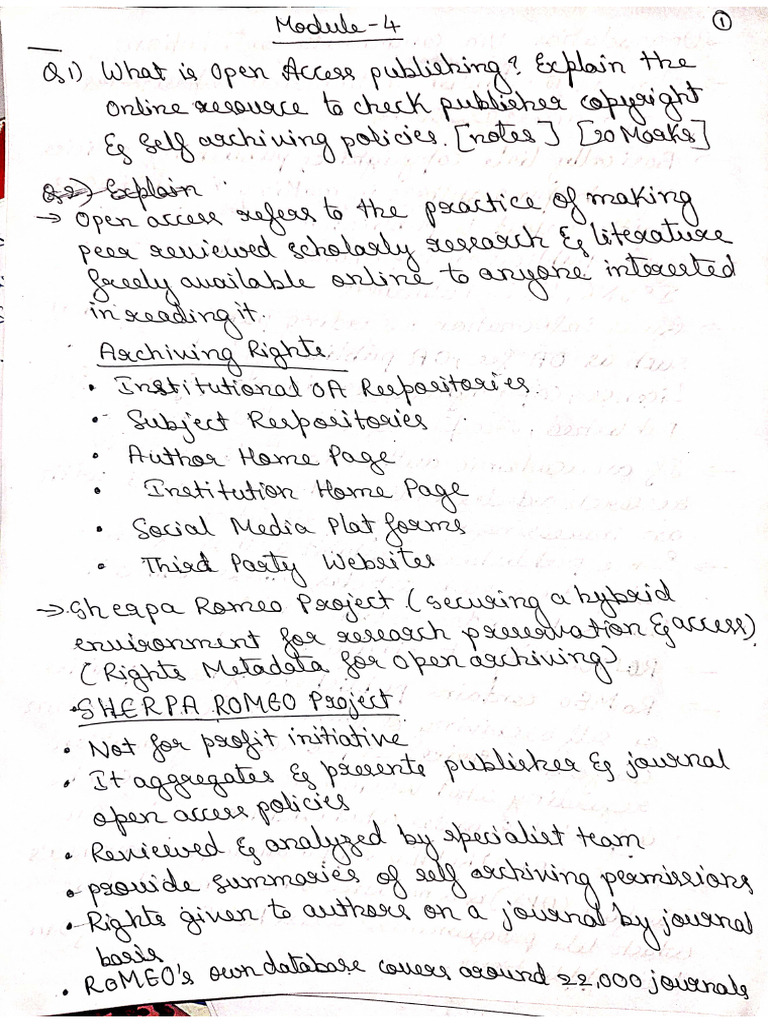 Module-4
①
Q1) What is Open Access publishing? Explain the
online resource to check publisher copyright
& Self archiving policies. [notes] [20 Marks]
Q2) Explain
→ Open access refers to the practice of making
peer reviewed scholarly research & literature
freely available online to anyone interested
in reading it.
Archiving Rights
• Institutional OA Respositories
• Subject Respositories
• Author Home Page
• Institution Home Page
• Social Media Plat forms
• Third Party Websites
→ Sherpa Romeo Project (securing a hybrid
environment for research preservation & access)
(Rights Metadata for open archiving)
• SHERPA ROMEO Project
• Not for profit initiative
• It aggregates & presents publisher & journal
open access policies
• Reviewed & analyzed by specialist team
• provide summaries of self archiving permissions
• Rights given to authors on a journal by journal
basis
• RoMEO's own database covers around 22,000 journals